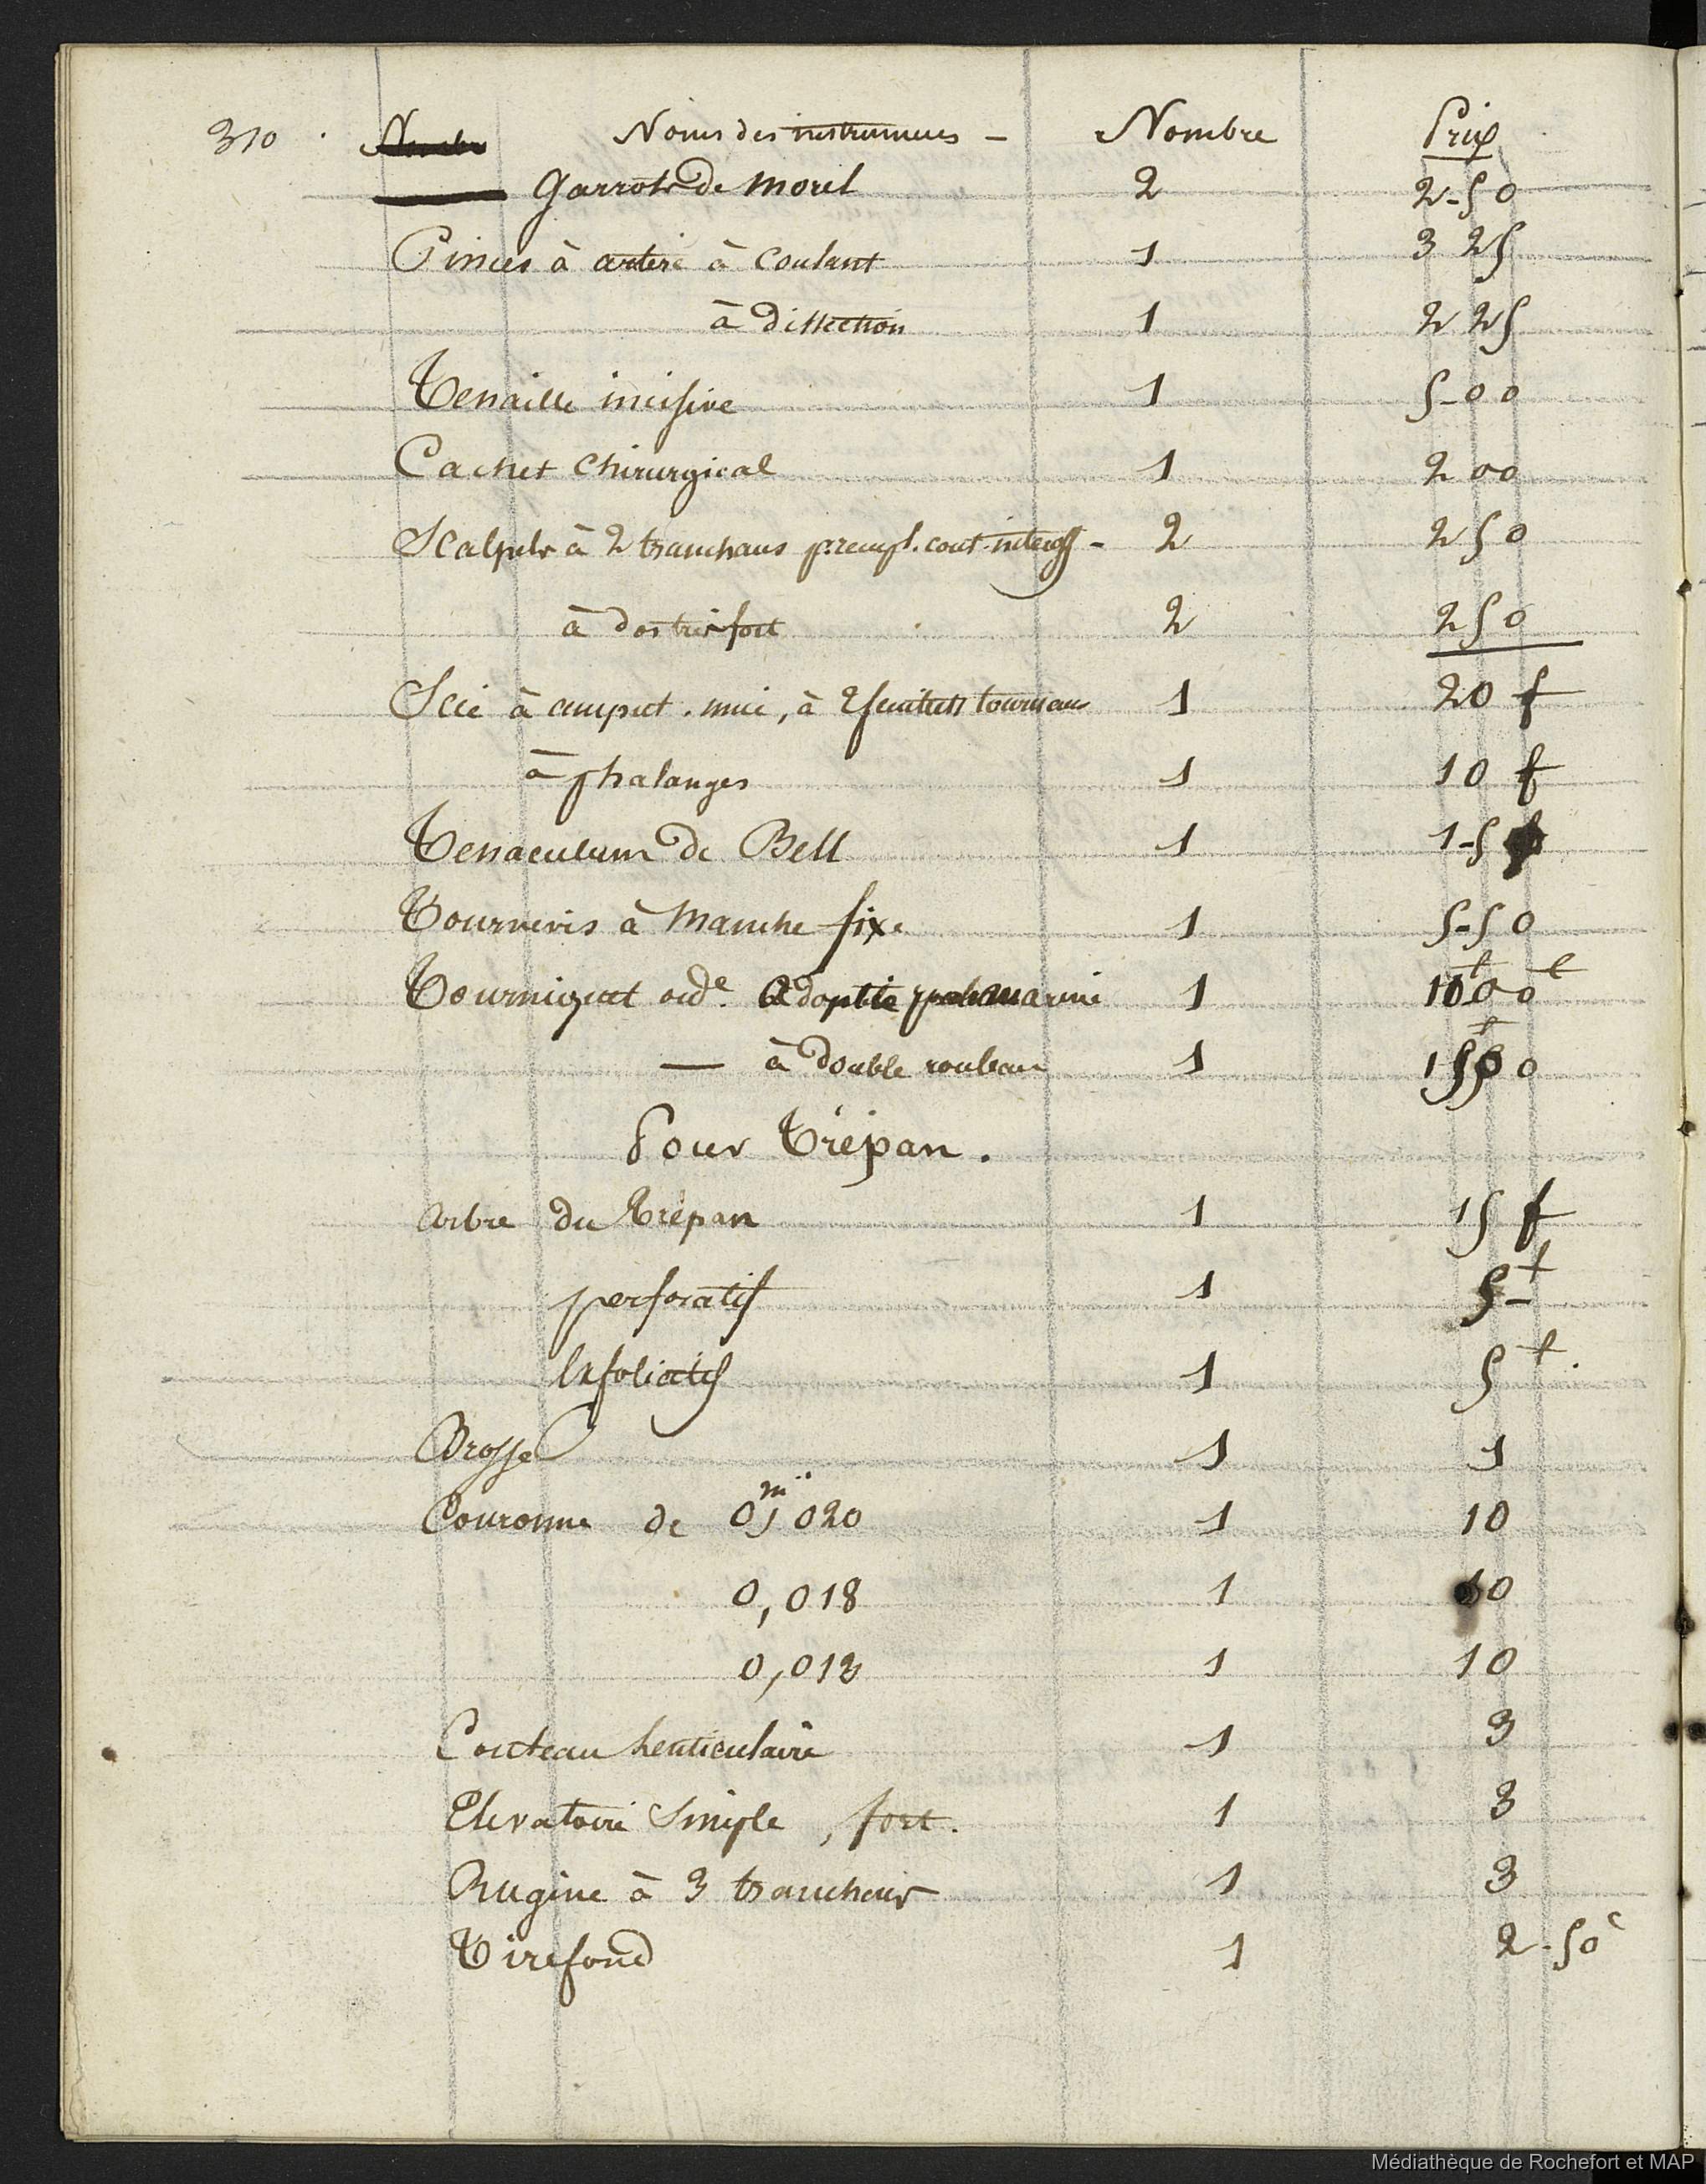 310. Noms des instrumens - Nombre Prix
Garrots de Morel 2 2-50
Pinces à artère à coulant 1 3 25
à dissection 1 2 25
Tenaille incisive 1 5-00
Cachet chirurgical 1 2 00
Scalpels à 2 tranchans p. rempl. cout. inteross - 2 2 50
à dos très fort 2 2 50
Scie à amput. mie, à 2 feuillets tournans 1 20 f
à phalanges 1 10 f
Tenaculum de Bell 1 1-5
Tournevis à manche fixe 1 5-50
Tourniquet ord.e adoptée marine 1 10 f 00 c
— à double rouleau 1 15 f 0
Pour Trépan.
Arbre du Trépan 1 15 f
perforatif 1 5 f -
Exfoliatif 1 5 f.
Brosse 1 1
Couronne de 0m,020 1 10
0,018 1 10
0,013 1 10
Couteau lenticulaire 1 3
Elevatoire simple, fort. 1 3
Rugine à 3 tranchans 1 3
Tirefond 1 2-50c
Médiathèque de Rochefort et MAP